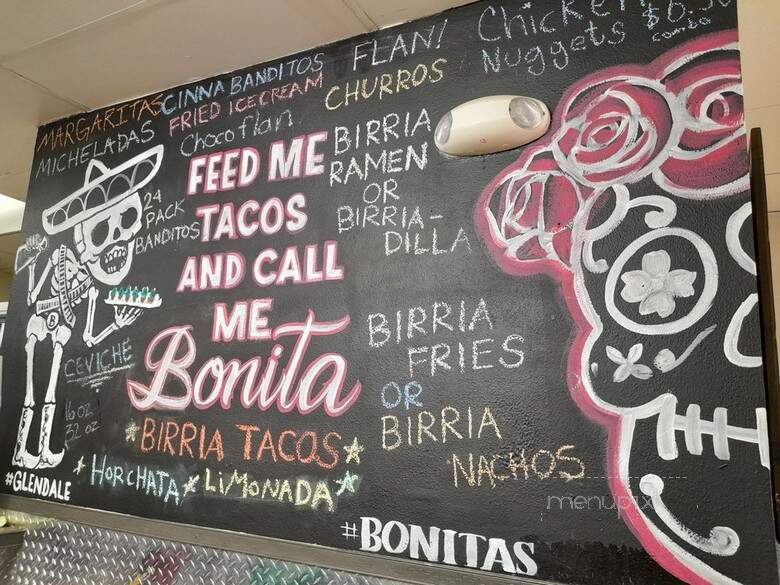 MARGARITAS
MICHELADAS
CINNA BANDITOS
FRIED ICECREAM
Chocoflan
FLAN!
CHURROS
Chicken
Nuggets
combo
24
PACK
BANDITOS
FEED ME
TACOS
AND CALL
ME
Bonita
BIRRIA
RAMEN
OR
BIRRIA-
DILLA
BIRRIA
FRIES
OR
BIRRIA
NACHOS
CEVICHE
16 oz
32 oz
BIRRIA TACOS
HORCHATA LIMONADA
#GLENDALE
#BONITAS
menupix